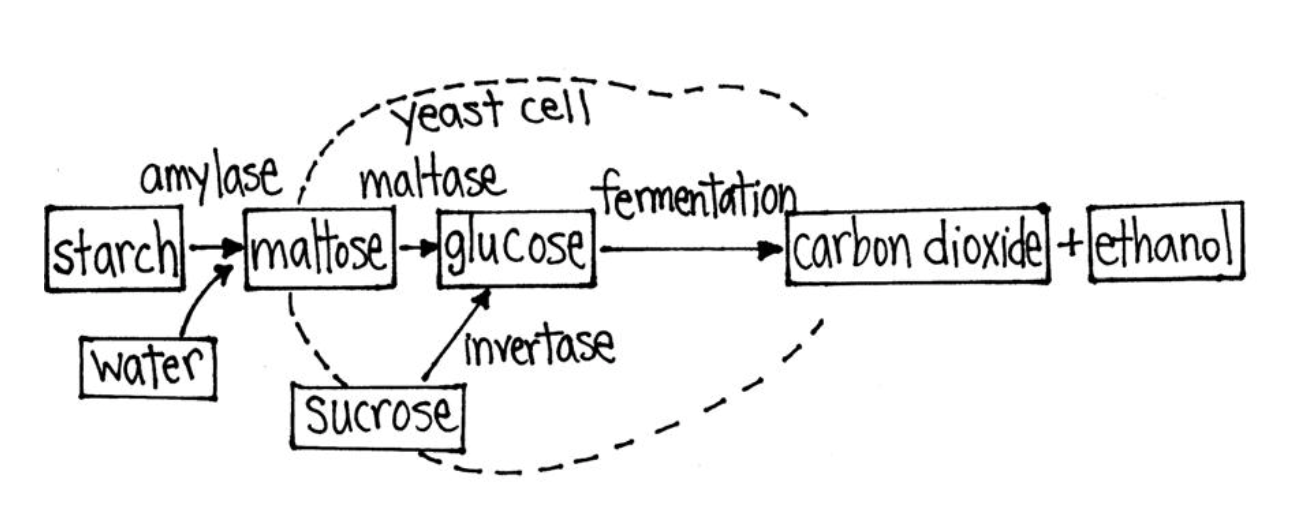 yeast cell
amylase maltase fermentation
starch maltose glucose carbon dioxide + ethanol
water invertase
sucrose